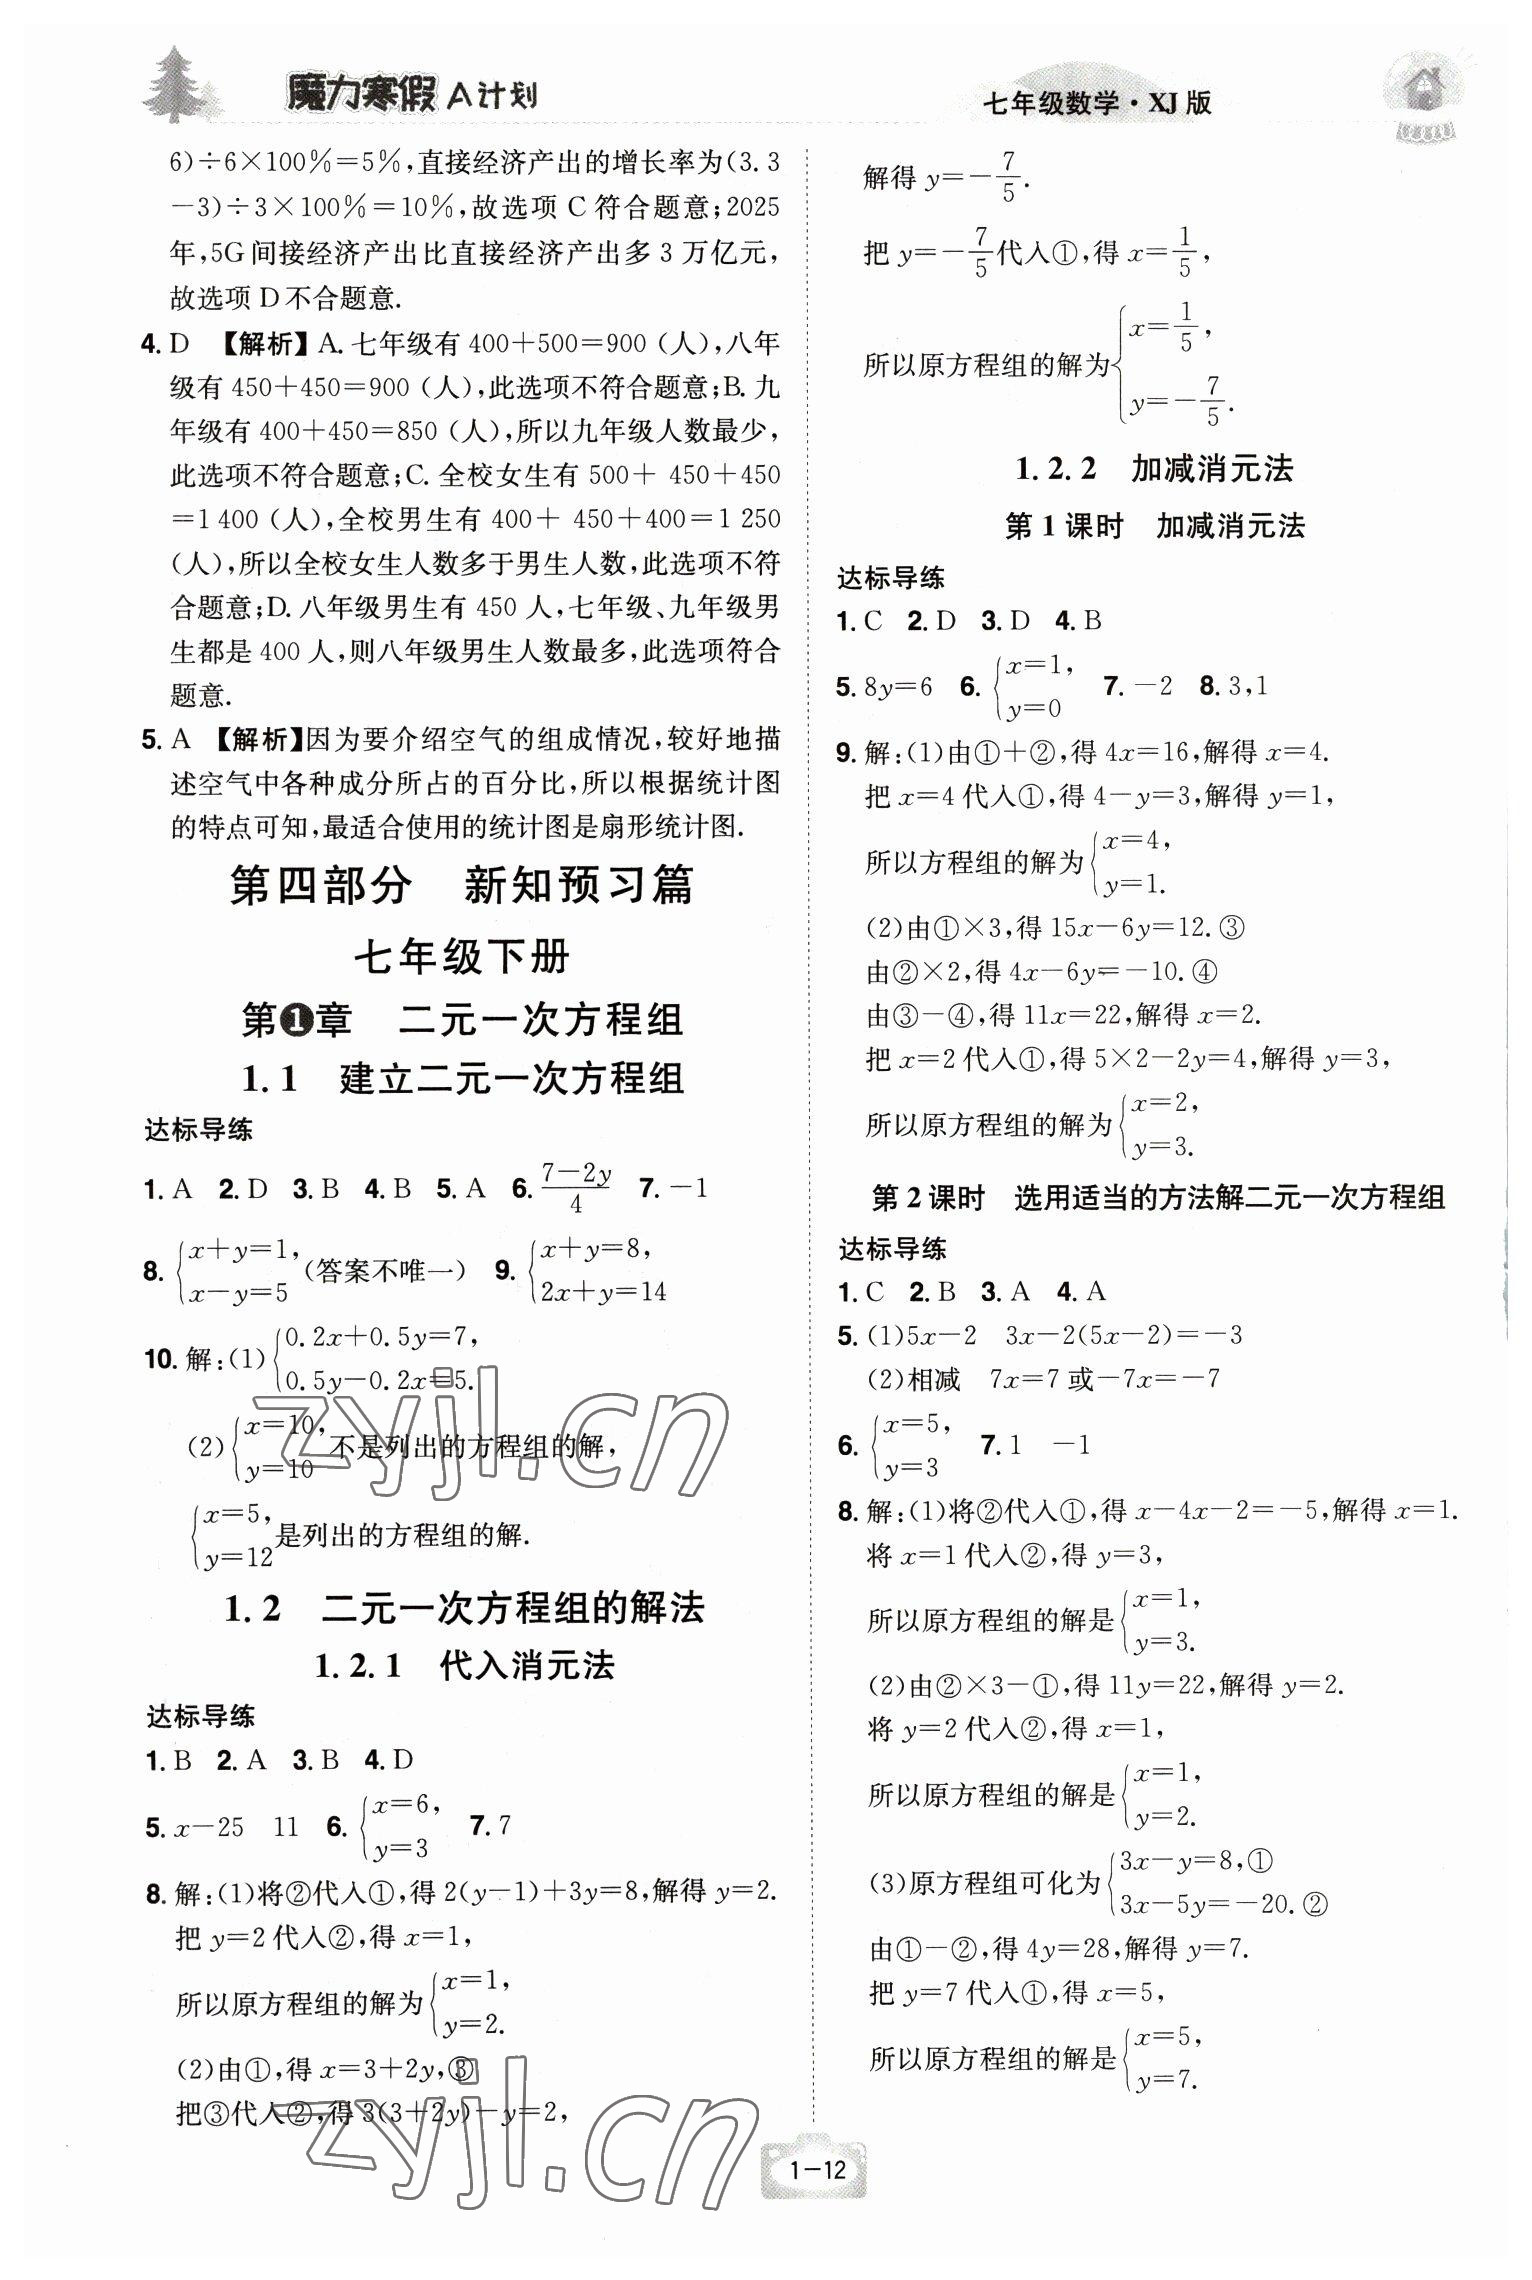 魔力寒假 A计划
七年级数学·XJ版
6)÷6×100%=5%,直接经济产出的增长率为(3.3
-3)÷3×100%=10%,故选项C符合题意;2025
年,5G间接经济产出比直接经济产出多3万亿元,
故选项D不合题意.
4. D 【解析】A.七年级有400+500=900(人),八年
级有450+450=900(人),此选项不符合题意;B.九
年级有400+450=850(人),所以九年级人数最少,
此选项不符合题意;C.全校女生有500+ 450+450
=1 400(人),全校男生有400+ 450+400=1 250
(人),所以全校女生人数多于男生人数,此选项不符
合题意;D.八年级男生有450人,七年级、九年级男
生都是400人,则八年级男生人数最多,此选项符合
题意.
5. A 【解析】因为要介绍空气的组成情况,较好地描
述空气中各种成分所占的百分比,所以根据统计图
的特点可知,最适合使用的统计图是扇形统计图.
第四部分 新知预习篇
七年级下册
第1章 二元一次方程组
1.1 建立二元一次方程组
达标导练
1. A 2. D 3. B 4. B 5. A 6. (7-2y)/4 7. -1
8. {x+y=1, x-y=5 (答案不唯一) 9. {x+y=8, 2x+y=14
10. 解:(1){0.2x+0.5y=7, 0.5y-0.2x=5.
(2){x=10, y=10 不是列出的方程组的解,
{x=5, y=12 是列出的方程组的解.
1.2 二元一次方程组的解法
1.2.1 代入消元法
达标导练
1. B 2. A 3. B 4. D
5. x-25 11 6. {x=6, y=3 7. 7
8. 解:(1)将②代入①,得2(y-1)+3y=8,解得y=2.
把y=2代入②,得x=1,
所以原方程组的解为{x=1, y=2.
(2)由①,得x=3+2y,③
把③代入②,得3(3+2y)-y=2,
解得y=-7/5.
把y=-7/5代入①,得x=1/5,
所以原方程组的解为{x=1/5, y=-7/5.
1.2.2 加减消元法
第1课时 加减消元法
达标导练
1. C 2. D 3. D 4. B
5. 8y=6 6. {x=1, y=0 7. -2 8. 3,1
9. 解:(1)由①+②,得4x=16,解得x=4.
把x=4代入①,得4-y=3,解得y=1,
所以方程组的解为{x=4, y=1.
(2)由①×3,得15x-6y=12.③
由②×2,得4x-6y=-10.④
由③-④,得11x=22,解得x=2.
把x=2代入①,得5×2-2y=4,解得y=3,
所以原方程组的解为{x=2, y=3.
第2课时 选用适当的方法解二元一次方程组
达标导练
1. C 2. B 3. A 4. A
5. (1)5x-2 3x-2(5x-2)=-3
(2)相减 7x=7或-7x=-7
6. {x=5, y=3 7. 1 -1
8. 解:(1)将②代入①,得x-4x-2=-5,解得x=1.
将x=1代入②,得y=3,
所以原方程组的解是{x=1, y=3.
(2)由②×3-①,得11y=22,解得y=2.
将y=2代入②,得x=1,
所以原方程组的解是{x=1, y=2.
(3)原方程组可化为{3x-y=8,① 3x-5y=-20.②
由①-②,得4y=28,解得y=7.
把y=7代入①,得x=5,
所以原方程组的解是{x=5, y=7.
1-12
zyjl.cn
zyjl.cn